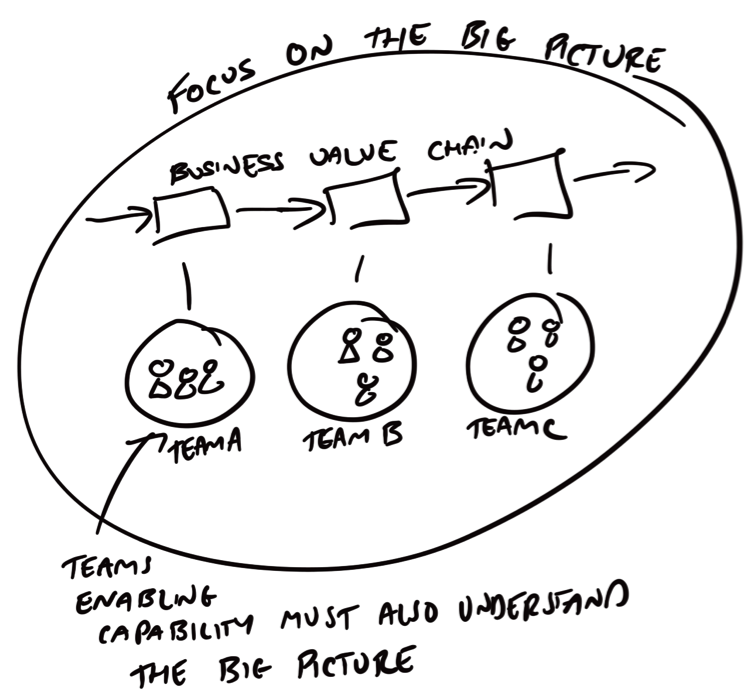 FOCUS ON THE BIG PICTURE
BUSINESS VALUE CHAIN
TEAM A
TEAM B
TEAM C
TEAMS
ENABLING
CAPABILITY MUST ALSO UNDERSTAND
THE BIG PICTURE